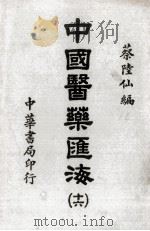 蔡陸仙編
中國醫藥匯海(十六)
中華書局印行